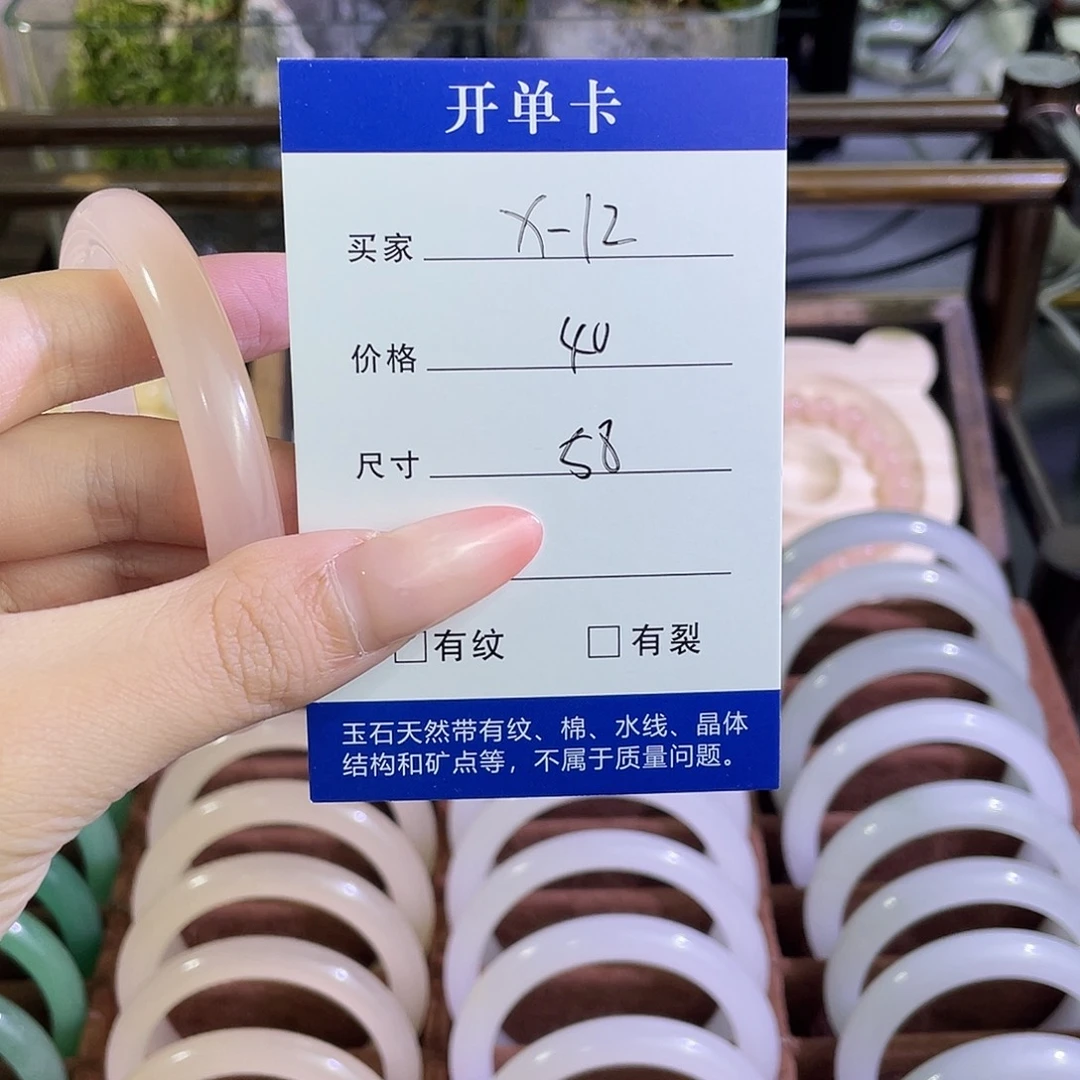 开单卡
买家 X-12
价格 40
尺寸 58
有纹 有裂
玉石天然带有纹、棉、水线、晶体
结构和矿点等，不属于质量问题。